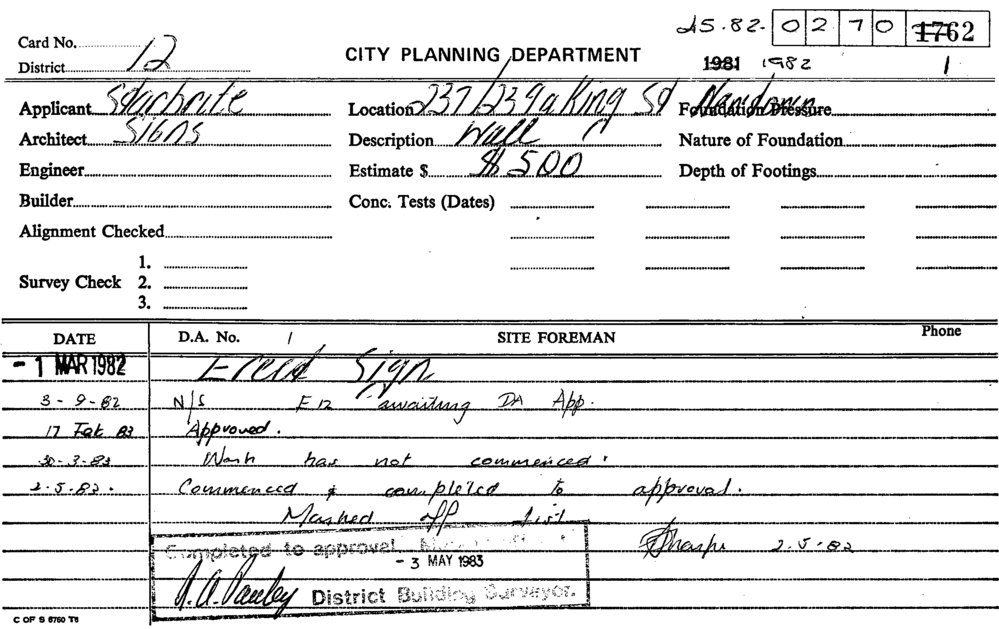 45.82. 0 2 7 0 1762
Card No. 12 CITY PLANNING DEPARTMENT 1981 1982 1
District
Applicant Starbrite Location 237/239a King St Newtown Foundation Pressure
Architect Signs Description Wall Nature of Foundation
Engineer Estimate $ $ 500 Depth of Footings
Builder Conc. Tests (Dates)
Alignment Checked
1.
Survey Check 2.
3.
DATE D.A. No. / SITE FOREMAN Phone
- 1 MAR 1982 Erect Sign
3-9-82 N/S awaiting DA App.
17 Feb 83 Approved.
30-3-83 Work has not commenced.
2.5.83. Commenced & completed to approval.
Marked off list
Completed to approval. 2.5.83
- 3 MAY 1983
District Building Surveyor.
C OF S 6760 T6